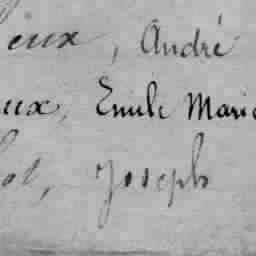 ieux, André
eux, Emile Marie
lot, Joseph